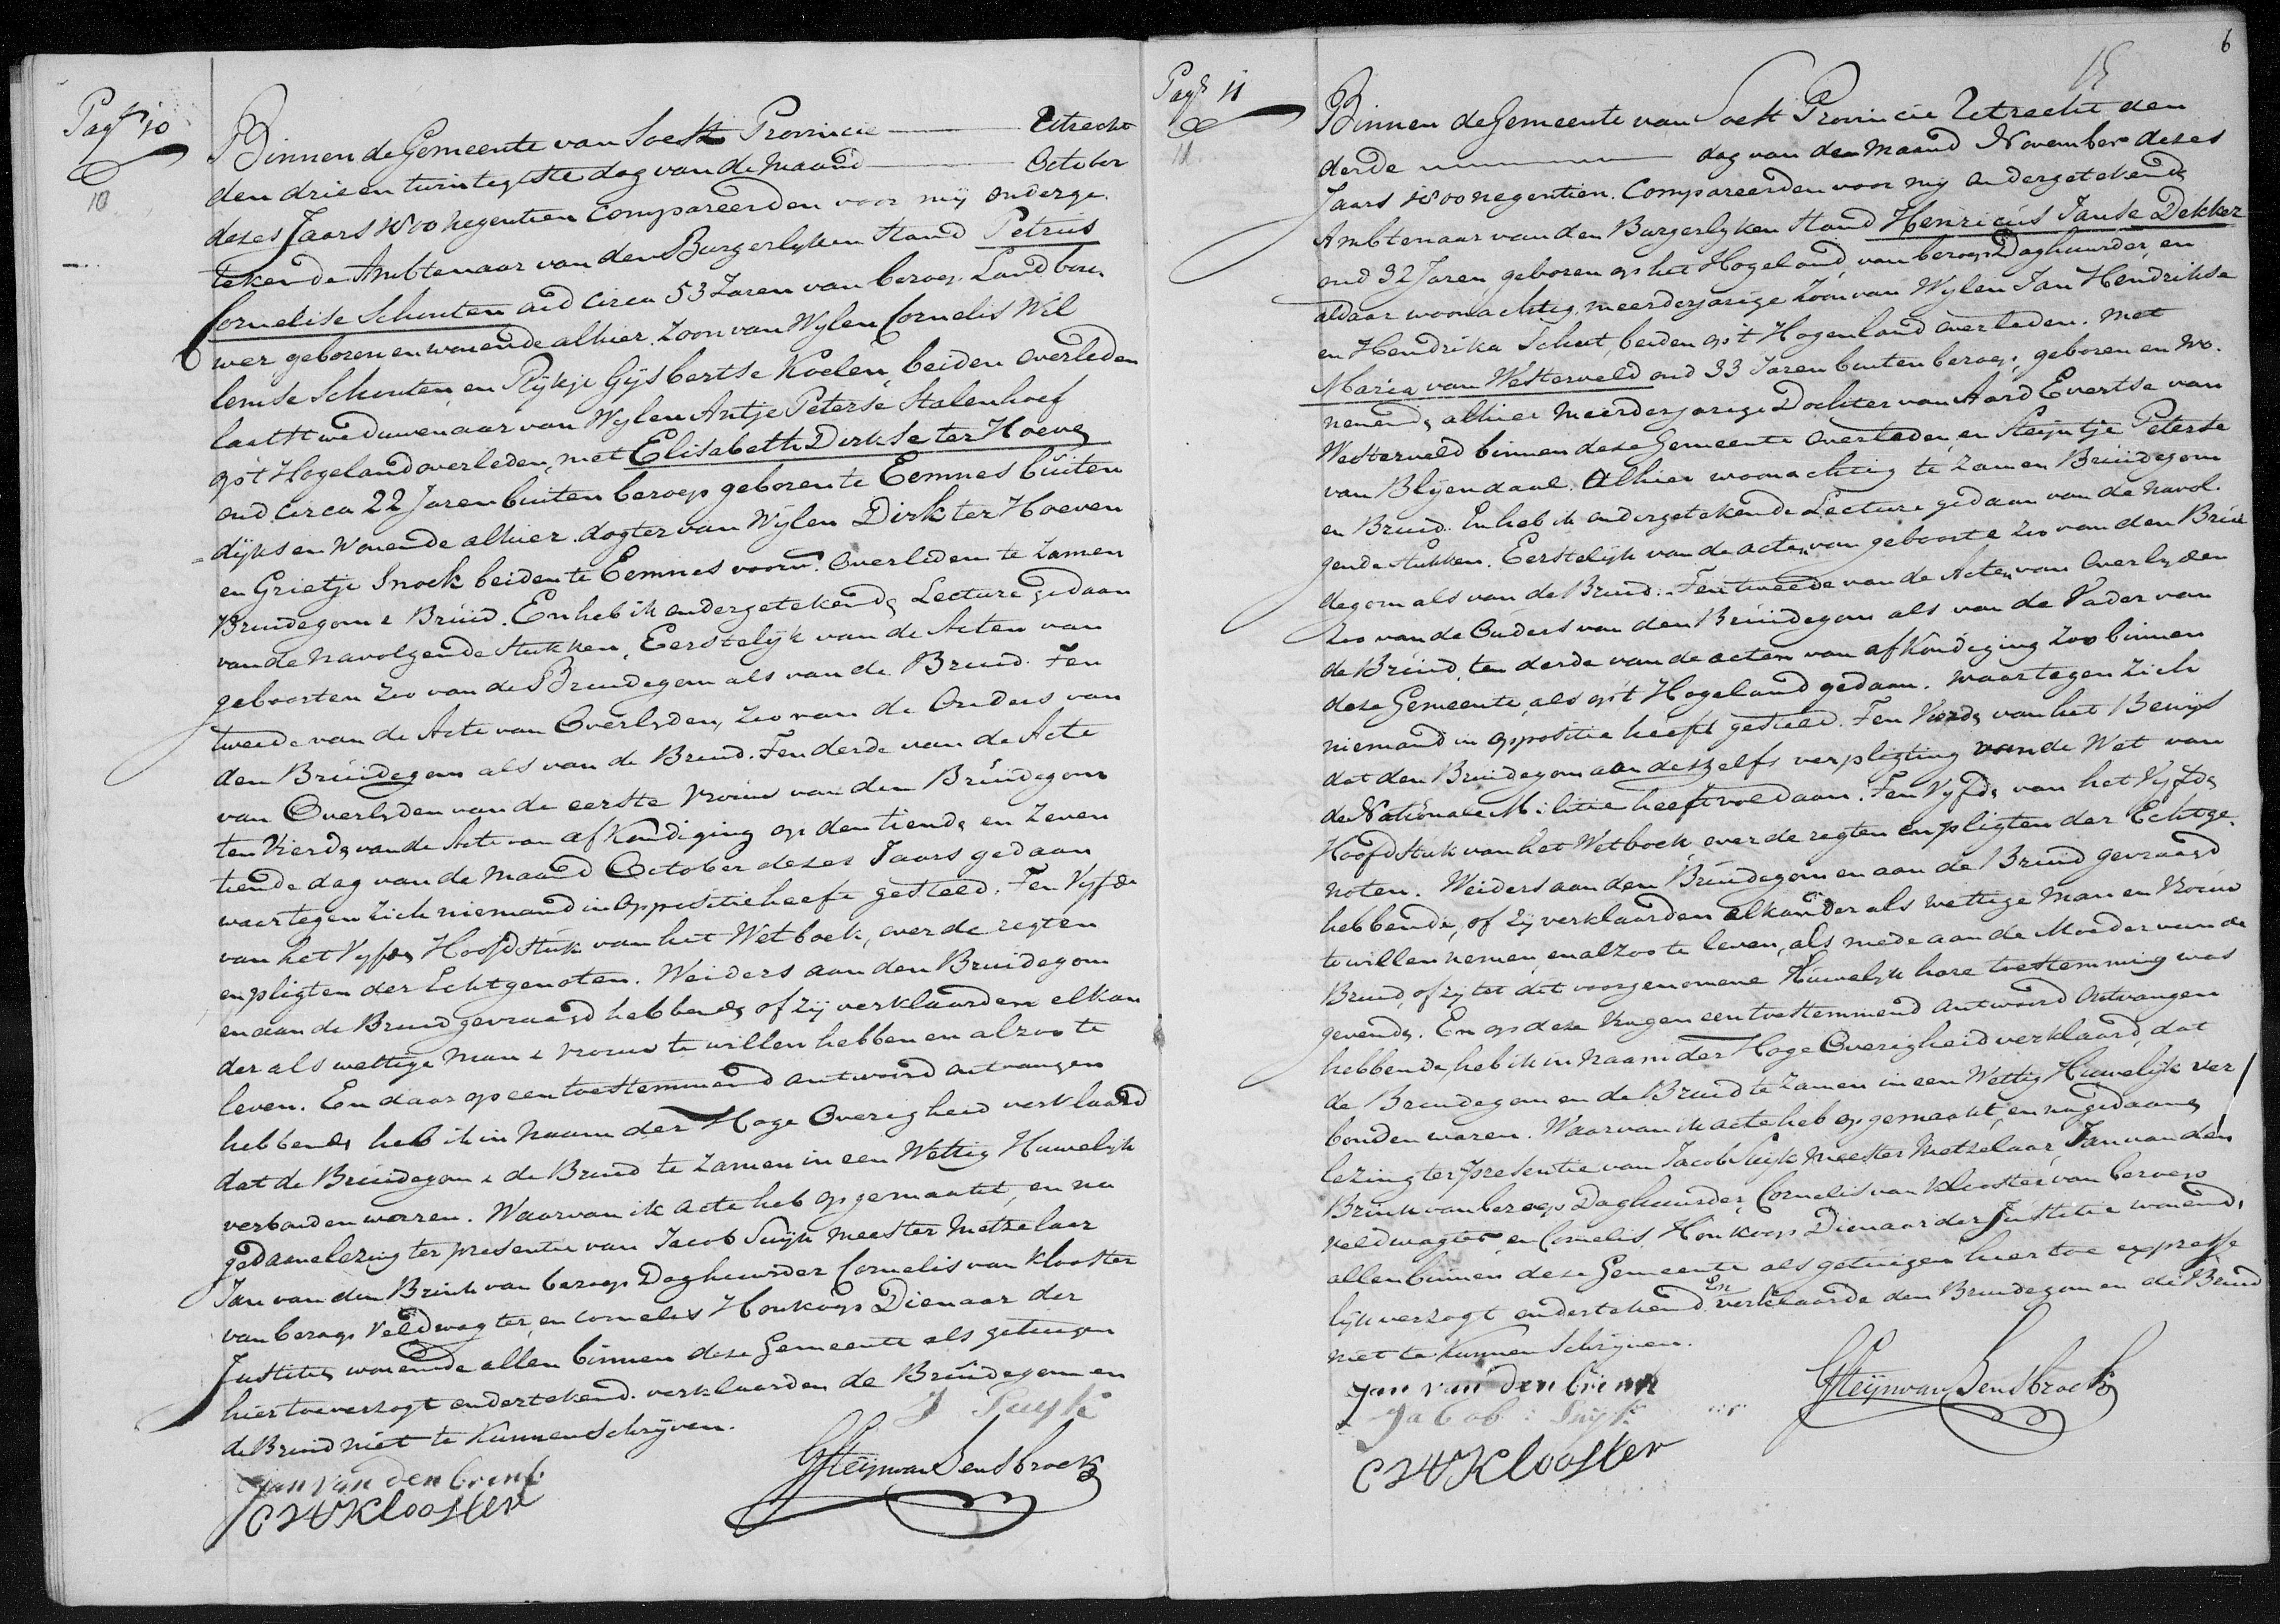 Pag. 10
10
Binnen de Gemeente van Soest Provincie Utrecht
den drie en twintegste dag van de Maand October
dezes Jaars 1800 negentien Compareerden voor mij onderge
tekende Ambtenaar van den Burgerlyken Stand Petrus
Cornelise Schouten oud circa 53 Jaren van beroep Landbou
wer, geboren en wonende alhier. Zoon van Wylen Cornelis Wil
lemse Schouten, en Rykje Gysbertse Koelen, beiden overleden
laatst weduwenaar van Wylen Antje Peterse Stalenhoef
op 't Hogeland overleden, met Elisabeth Dirkse ter Hoeve
oud circa 22 Jaren buiten beroep geboren te Eemnes buiten
dijks en Wonende alhier. dogter van Wylen Dirk ter Hoeven
en Grietje Snoek beiden te Eemnes voorn. Overleden te Zamen
Bruidegom & Bruid. En heb ik ondergetekende Lecture gedaan
van de navolgende stukken, Eerstelijk van de Acten van
geboorten zoo van de Bruidegom als van de Bruid. Ten
tweede van de Acte van Overlyden, zoo van de Ouders van
den Bruidegom als van de Bruid. Ten derde van de Acte
van Overlyden van de eerste Vrouw van den Bruidegom
ten Vierde van de Acte van afkondiging op den tiende en Zeven
tiende dag van de Maand October dezes Jaars gedaan
waartegen Zich niemand in Oppositie heeft gesteld. Ten Vyfde
van het Vyfde Hoofdstuk van het Wetboek, over de regten
en pligten der Echtgenoten. Weiders aan den Bruidegom
en aan de Bruid gevraagd hebbende of zij verklaarden elkan
der als wettige Man & vrouw te willen hebben en alzoo te
leven. En daar op een toestemmend antwoord ontvangen
hebbende heb ik in Naam der Hoge Overigheid verklaard
dat de Bruidegom & de Bruid te Zamen in een Wettig Huwelijk
verbonden warren. Waarvan ik acte heb opgemaakt, en na
gedaane lezing ter presentie van Jacob Suijk Meester Metzelaar
Jan van den Brink van beroep Daghuurder Cornelis van Klooster
van beroep Veldwagter, en Cornelis Honkoop Dienaar der
Justitie, wonende allen binnen deze Gemeente als getuigen
hier toe verzogt ondertekend. verklaarden de Bruidegom en
de Bruid niet te kunnen Schryven.
J Suyk
Jan van den brink
C V Klooster
6
Pag. 11
11
Binnen de Gemeente van Soest Provincie Utrecht den
derde dag van den Maand November dezes
Jaars 1800 negentien. Compareerden voor mij ondergetekende
Ambtenaar van den Burgerlyken Stand Henricus Janse Dekker
oud 32 Jaren, geboren op het Hogeland, van beroep Daghuurder, en
aldaar woonachtig, meerderjarige Zoon van Wylen Jan Hendrikse
en Hendrika Schut, beiden op 't Hogenland Overleden. met
Maria van Westerveld oud 33 Jaren buiten beroep, geboren en wo
nende, alhier Meerderjarige Dochter van Aard Evertse van
Westerveld binnen deze Gemeente Overleden, en Steyntje Peterse
van Blyendaal. Alhier woonachtig te Zamen Bruidegom
en Bruid. En heb ik ondergetekende Lecture gedaan van de navol
gende stukken. Eerstelyk van de acten van geboorte zoo van den Brui
degom als van de Bruid. Ten tweede van de Acten van Overlyden
Zoo van de Ouders van den Bruidegom als van de Vader van
de Bruid, ten derde van de acten van afkondiging zoo binnen
deze Gemeente, als op 't Hogeland gedaan. waartegen Zich
niemand in oppositie heeft gesteld. Ten Vierde van het Bewijs
dat den Bruidegom aan deszelfs verpligting van de Wet van
de Nationale Militie heeft voldaan. Ten Vyfde van het Vyfde
Hoofdstuk van het Wetboek, over de regten en pligten der Echtge
noten. Weiders aan den Bruidegom en aan de Bruid gevraagd
hebbende, of zij verklaarden elkander als wettige Man en Vrouw
te willen nemen, en alzoo te leven, als mede aan de Moeder van de
Bruid, of zij tot dit voorgenomene Huwelijk hare toestemming was
gevende. En op deze vragen een toestemmend antwoord Ontvangen
hebbende heb ik in Naam der Hoge Overigheid verklaard, dat
de Bruidegom en de Bruid te Zamen in een Wettig Huwelijk ver
bonden waren. Waarvan ik acte heb opgemaakt, en na gedaane
lezing ter presentie van Jacob Suijk Meester Metzelaar, Jan van den
Brink van beroep Daghuurder, Cornelis van Klooster van beroep
veldwagter en Cornelis Honkoop Dienaar der Justitie wonende
allen binnen deze Gemeente als getuigen hier toe expresse
lijk verzogt ondertekend. En verklaarde den Bruidegom en de Bruid
niet te kunnen Schryven.
Jan van den brink
Jacob Suyk
C V Klooster